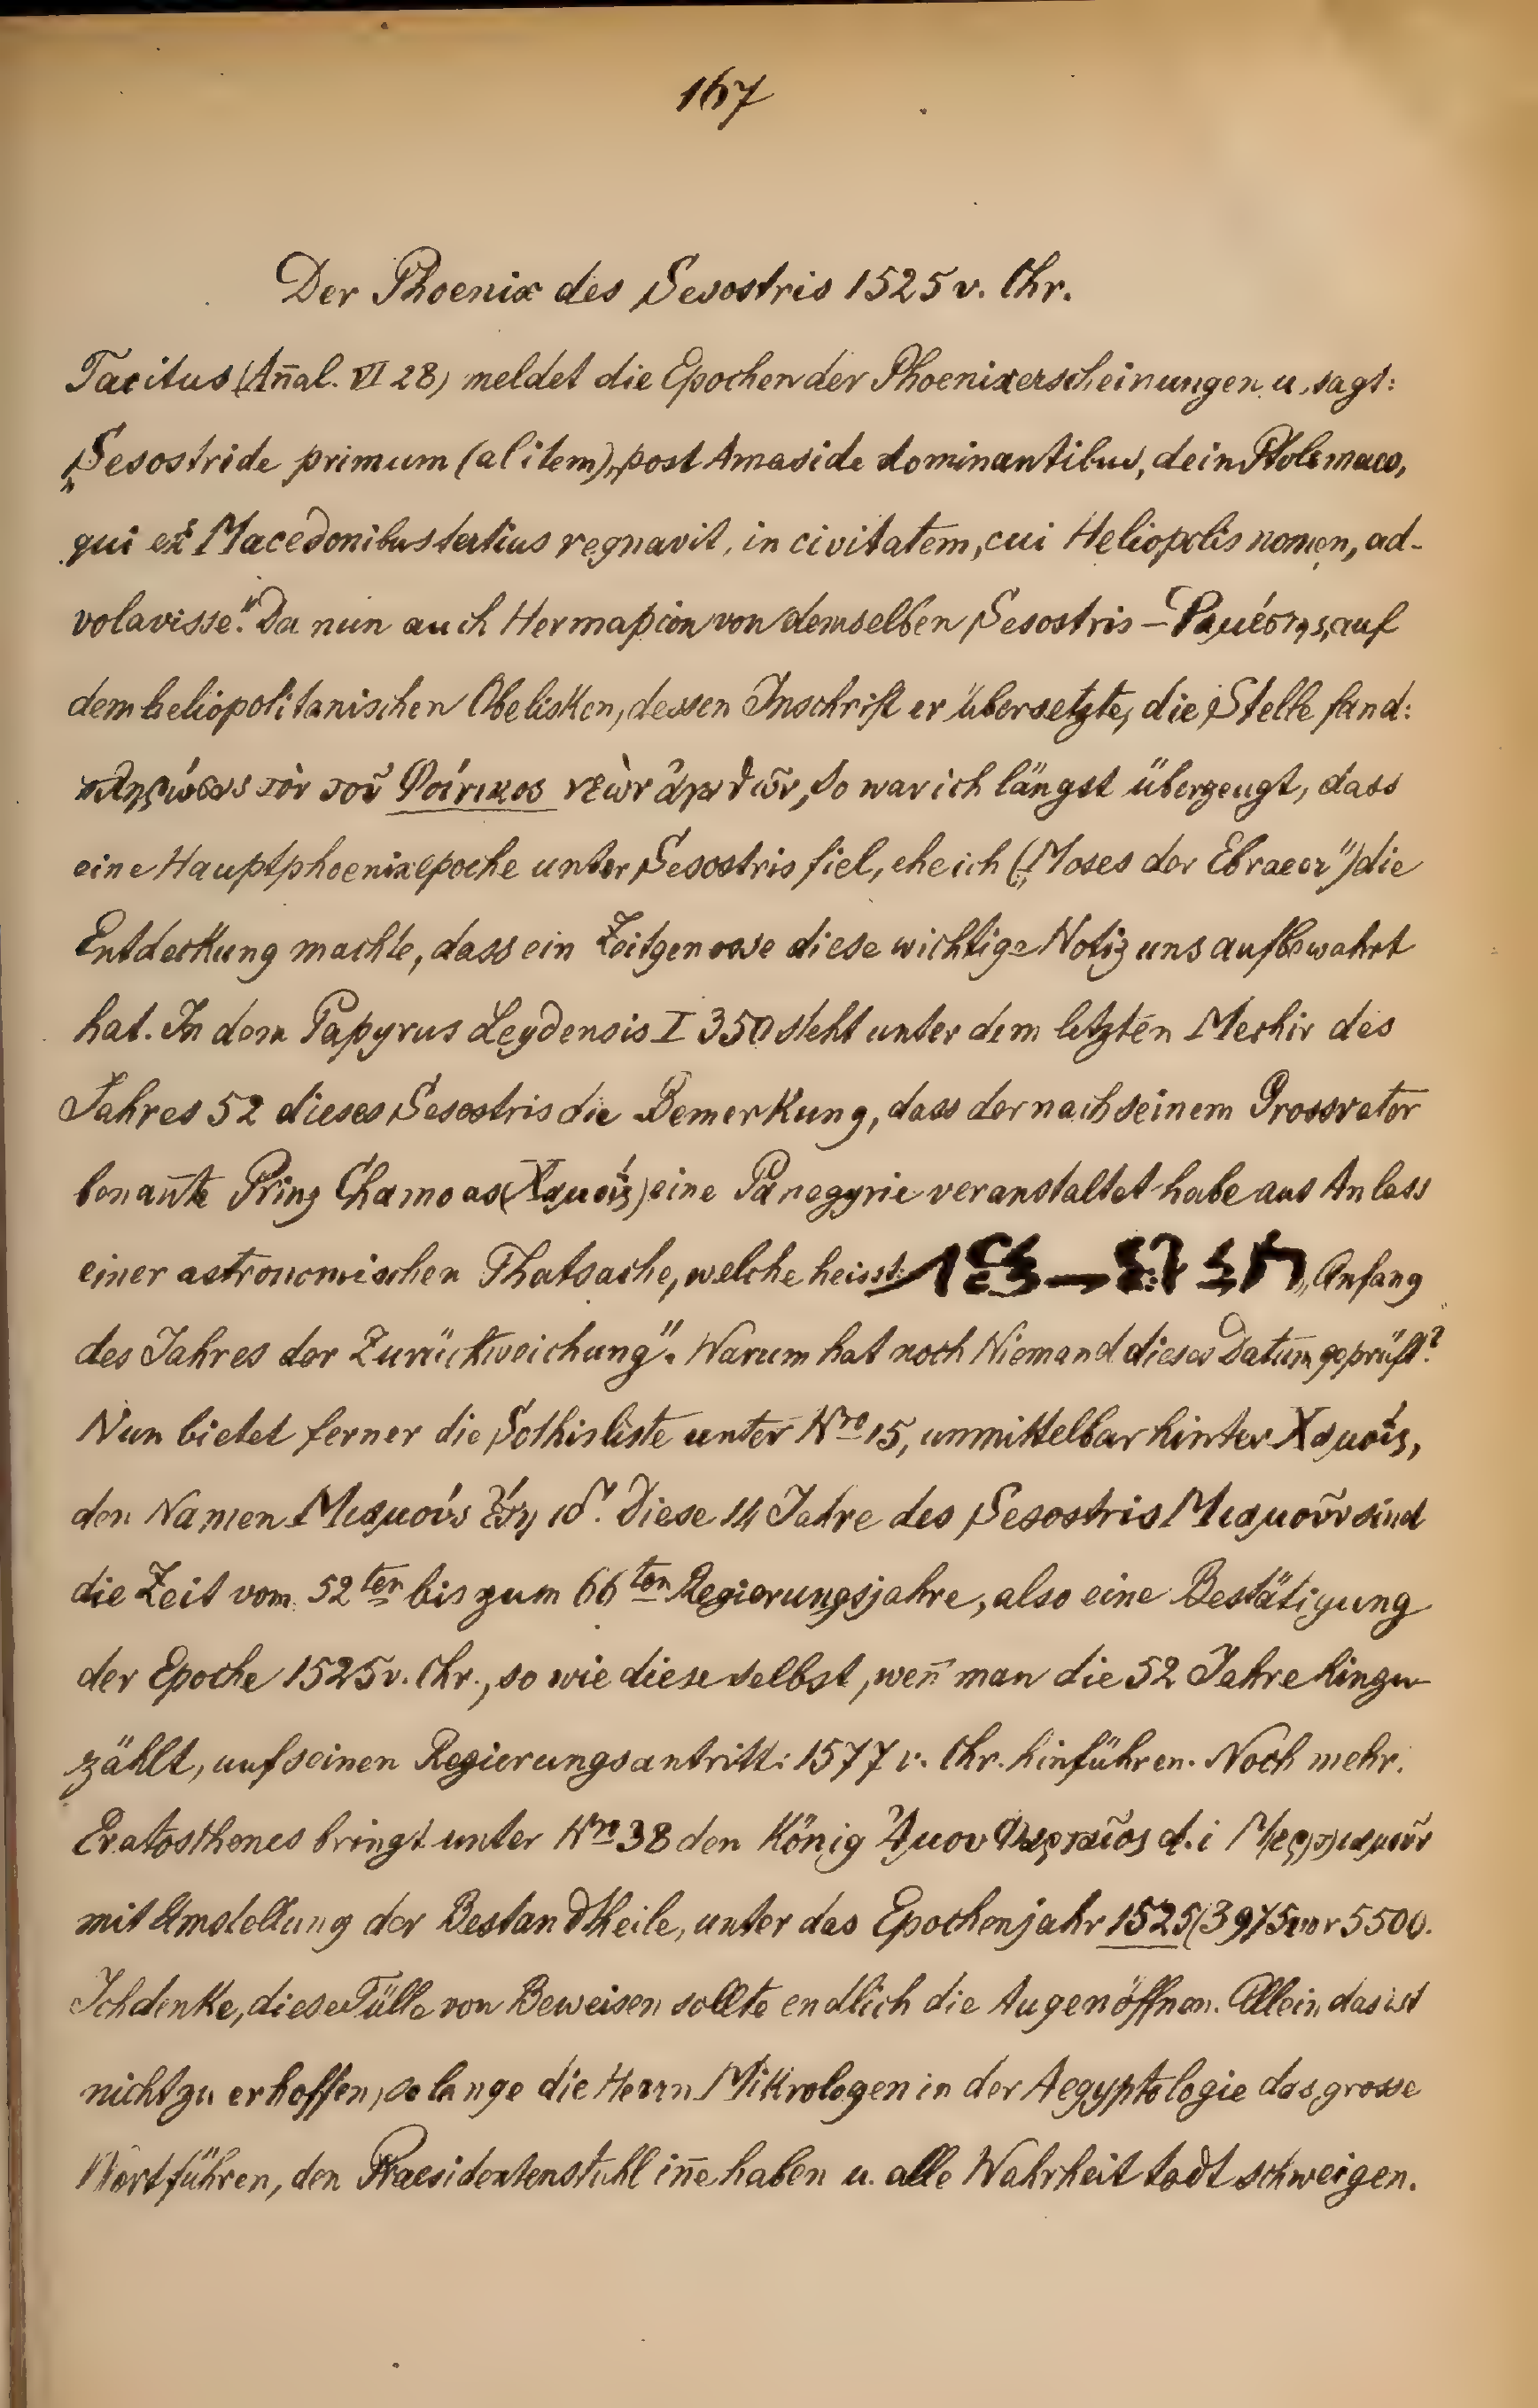 167
Der Phoenix des Sesostris 1525 v. Chr.
Tacitus (Añal. VI 28) meldet die Epochen der Phoenixerscheinungen u. sagt:
„Sesostride primum (alitem), post Amaside dominantibus, dein Ptolemaeo,
qui ex Macedonibus tertius regnavit, in civitatem, cui Heliopolis nomen, ad-
volavisse.“ Da nun auch Hermapion von demselben Sesostris – Ῥαμέστης, auf
dem heliopolitanischen Obelisken, dessen Inschrift er übersetzte, die Stelle fand:
πληρώσας τὸν τοῦ Φοίνικος νεὼν ἀγαθῶν, so war ich längst überzeugt, dass
eine Hauptphoenixepoche unter Sesostris fiel, ehe ich („Moses der Ebraeer“) die
Entdeckung machte, dass ein Zeitgenosse diese wichtige Notiz uns aufbewahrt
hat. In dem Papyrus Leydensis I 350 steht unter dem letzten Mechir des
Jahres 52 dieses Sesostris die Bemerkung, dass der nach seinem Grossvater
benañte Prinz Chamoas (Χαμοΐς) eine Panegyrie veranstaltet habe aus Anlass
einer astronomischen Thatsache, welche heisst: „Anfang
des Jahres der Zurückweichung“. Warum hat noch Niemand dieses Datum geprüft?
Nun bietet ferner die Sothisliste unter Nro 15, unmittelbar hinter Χαμοΐς,
den Namen Μιαμοὺς ἔτη ιδ'. Diese 14 Jahre des Sesostris Μιαμοῦν sind
die Zeit vom 52ten bis zum 66ten Regierungsjahre, also eine Bestätigung
der Epoche 1525 v. Chr., so wie diese selbst, weñ man die 52 Jahre hinzu-
zählt, auf seinen Regierungsantritt: 1577 v. Chr. hinführen. Noch mehr.
Eratosthenes bringt unter Nro 38 den König d. i
mit Umstellung der Bestandtheile, unter das Epochenjahr 1525 (3975 vor 5500.
Ich denke, diese Fülle von Beweisen sollte endlich die Augen öffnen. Allein das ist
nicht zu erhoffen, so lange die Herrn Mikrologen in der Aegyptologie das grosse
Wort führen, den Praesidentenstuhl iñe haben u. alle Wahrheit todt schweigen.